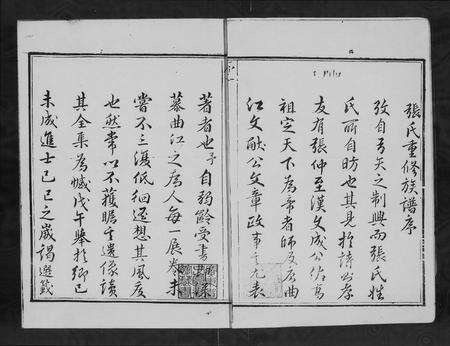 張氏重修族譜序
攷自弓矢之制興而張氏姓
氏所自昉也其見於詩必孝
友有張仲至漢文成公佐高
祖定天下為帝者師及唐曲
江文獻公文章政事尤表
著者也予自弱齡受書
慕曲江之為人每一展卷未
嘗不三復低徊遐想其風度
也然常以不獲瞻遺像讀
其全集為憾戊午舉於鄉己
未成進士己巳之歲謁選籤